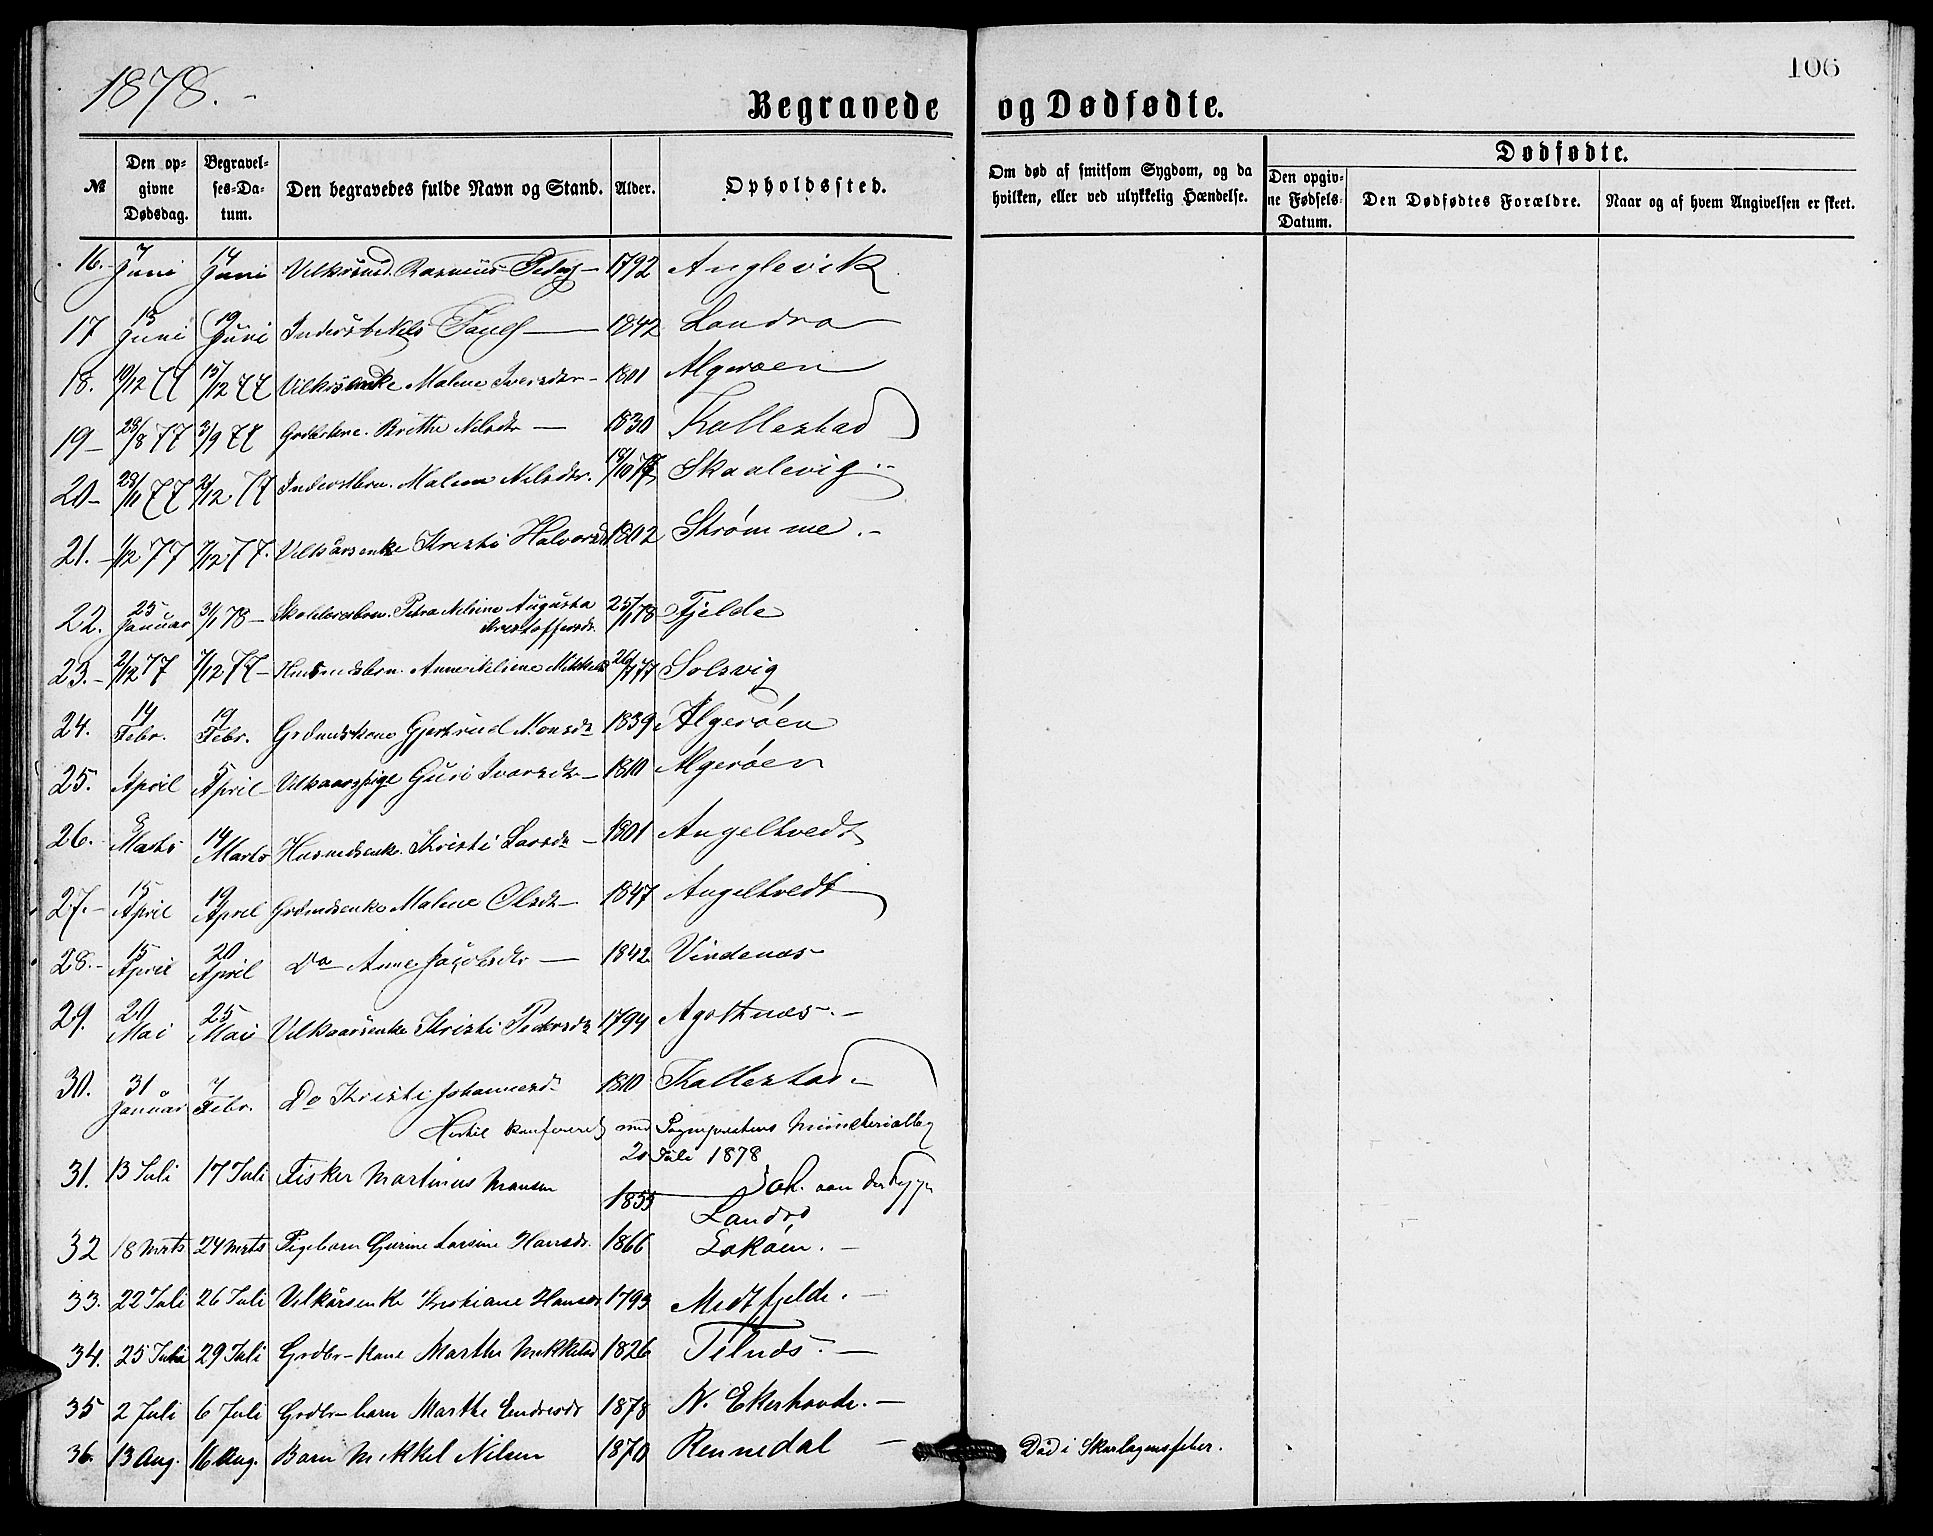 1878.
106
Begravede og Dødfødte.
№ Den opgivne Dødsdag. Begravelses-Datum. Den begravedes fulde Navn og Stand. Alder. Opholdssted. Om død af smitsom Sygdom, og da hvilken, eller ved ulykkelig Hændelse.
Dødfødte.
Den opgivne Fødsels-Datum. Den Dødfødtes Forældre. Naar og af hvem Angivelsen er skeet.
16. 7 Juni 14 Juni Rasmus 1792 Anglevik
17 13 Juni 19 Juni Inderst Nels 1842 Landro
18. 10/12 77 15/12 77 Vilkårsenke Malene Iversdtr 1801 Algerøen
19 28/8 77 3/9 77 Brithe Nilsdtr 1830 Kallestad
20 28/11 77 2/12 77 Inderstbrn. Malene Nilsdtr. 77 Skaalevig
21. 1/12 77 7/12 77. Vilkårsenke Kristi Halvorsd 1802 Strømme
22. 25 Januar 31/1 78 Petra Nelsine Augusta Kristoffersdr. 25/1 78 Fjelde
23. 2/12 77 7/12 77 Husmdsbrn. Anne Mikkelsd 77 Solsvig
24. 14 Febr. 19 Febr. Grdmdskone Gjertrud Monsdr 1839 Algerøen
25. 1 April 5 April Vilkaarspige Guri Ivarsdr 1810 Algerøen
26. 8 Marts 14 Marts Husmdsenke. Kristi Larsdr 1801 Angeltvedt
27. 15 April 19 April Grdmdsenke Malene Olsdr 1847 Angeltvedt
28. 15 April 20 April Do Anne Jacobsdtr 1842 Vindenæs
29. 20 Mai 25 Mai Vilkaarsenke Kristi Pedersdr 1794 Agotnæs
30. 31 Januar 7 Febr. Do Kristi Johannesdr 1810 Kallestad
Hertil konfereret med Sognepræstens Ministerialbog
20 Juli 1878
Joh. van der
31. 13 Juli 17 Juli Fisker Martinus Monsen 1855 Landro
32 18 Mrts 24 Mrts Pigebarn Gurine Larsine Hansdr. 1866 Lokøen.
33. 22 Juli 26 Juli Vilkårsenke Kristiane Hansdr 1793 Midtfjelde.
34. 25 Juli 29 Juli Grdbr-kone Marthe Mikkelsd 1826 Telnæs.
35 2 Juli 6 Juli Grdbr-barn Marthe Endresdr 1878 N. Ekerhovde.
36. 13 Aug. 16 Aug. Barn Mikkel Nilsen 1870 Rennedal Død i Skarlagensfeber.